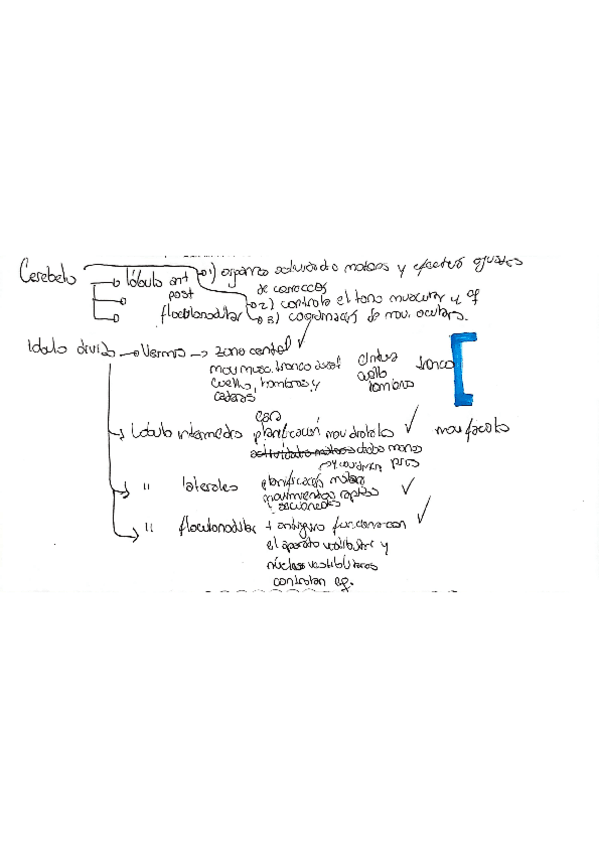 Cerebelo
lóbulo ant
post
floculonodular
1) organiza actividad motora y efectua ajustes
de
2) controla el tono muscular y eq
3) coordinación de mov. oculares.
lóbulo divid → Vermis → zona central
mov musc. tronco axial
cuello, hombros y
caderas
cintura
cuello
hombros
tronco
→ lóbulo intermedio planificación mov distales mov facial
cara
manos
pies
→ " laterales planificación motora
movimientos rápidos
→ " floculonodular + antiguo funciona con
el aparato vestibular y
núcleos vestibulares
controlan eq.